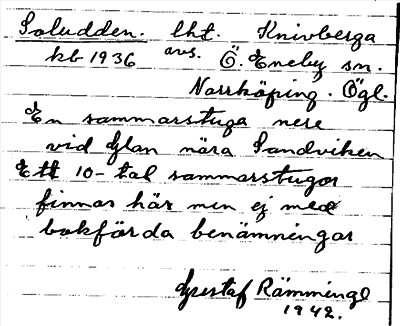 Soludden. lht. Knivberga
kb 1936 avs. Ö. Eneby sn.
Norrköping. Ögl.
En sommarstuga nere
vid Glan nära Sandviken
Ett 10-tal sommarstugor
finnas här men ej med
bokförda benämningar
Gustaf Rämminge
1942.